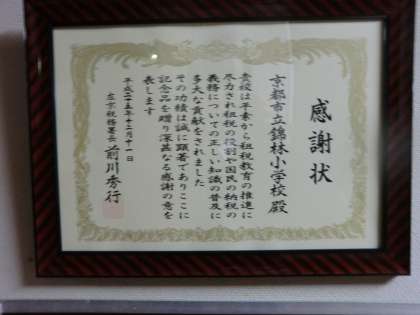 感謝状
京都市立錦林小学校殿
貴校は平素から租税教育の推進に
尽力され租税の役割や国民の納税の
義務についての正しい知識の普及に
多大な貢献をされました
その功績は誠に顕著でありここに
記念品を贈り深甚なる感謝の意を
表します
平成二十五年十一月十一日
左京税務署長 前川秀行